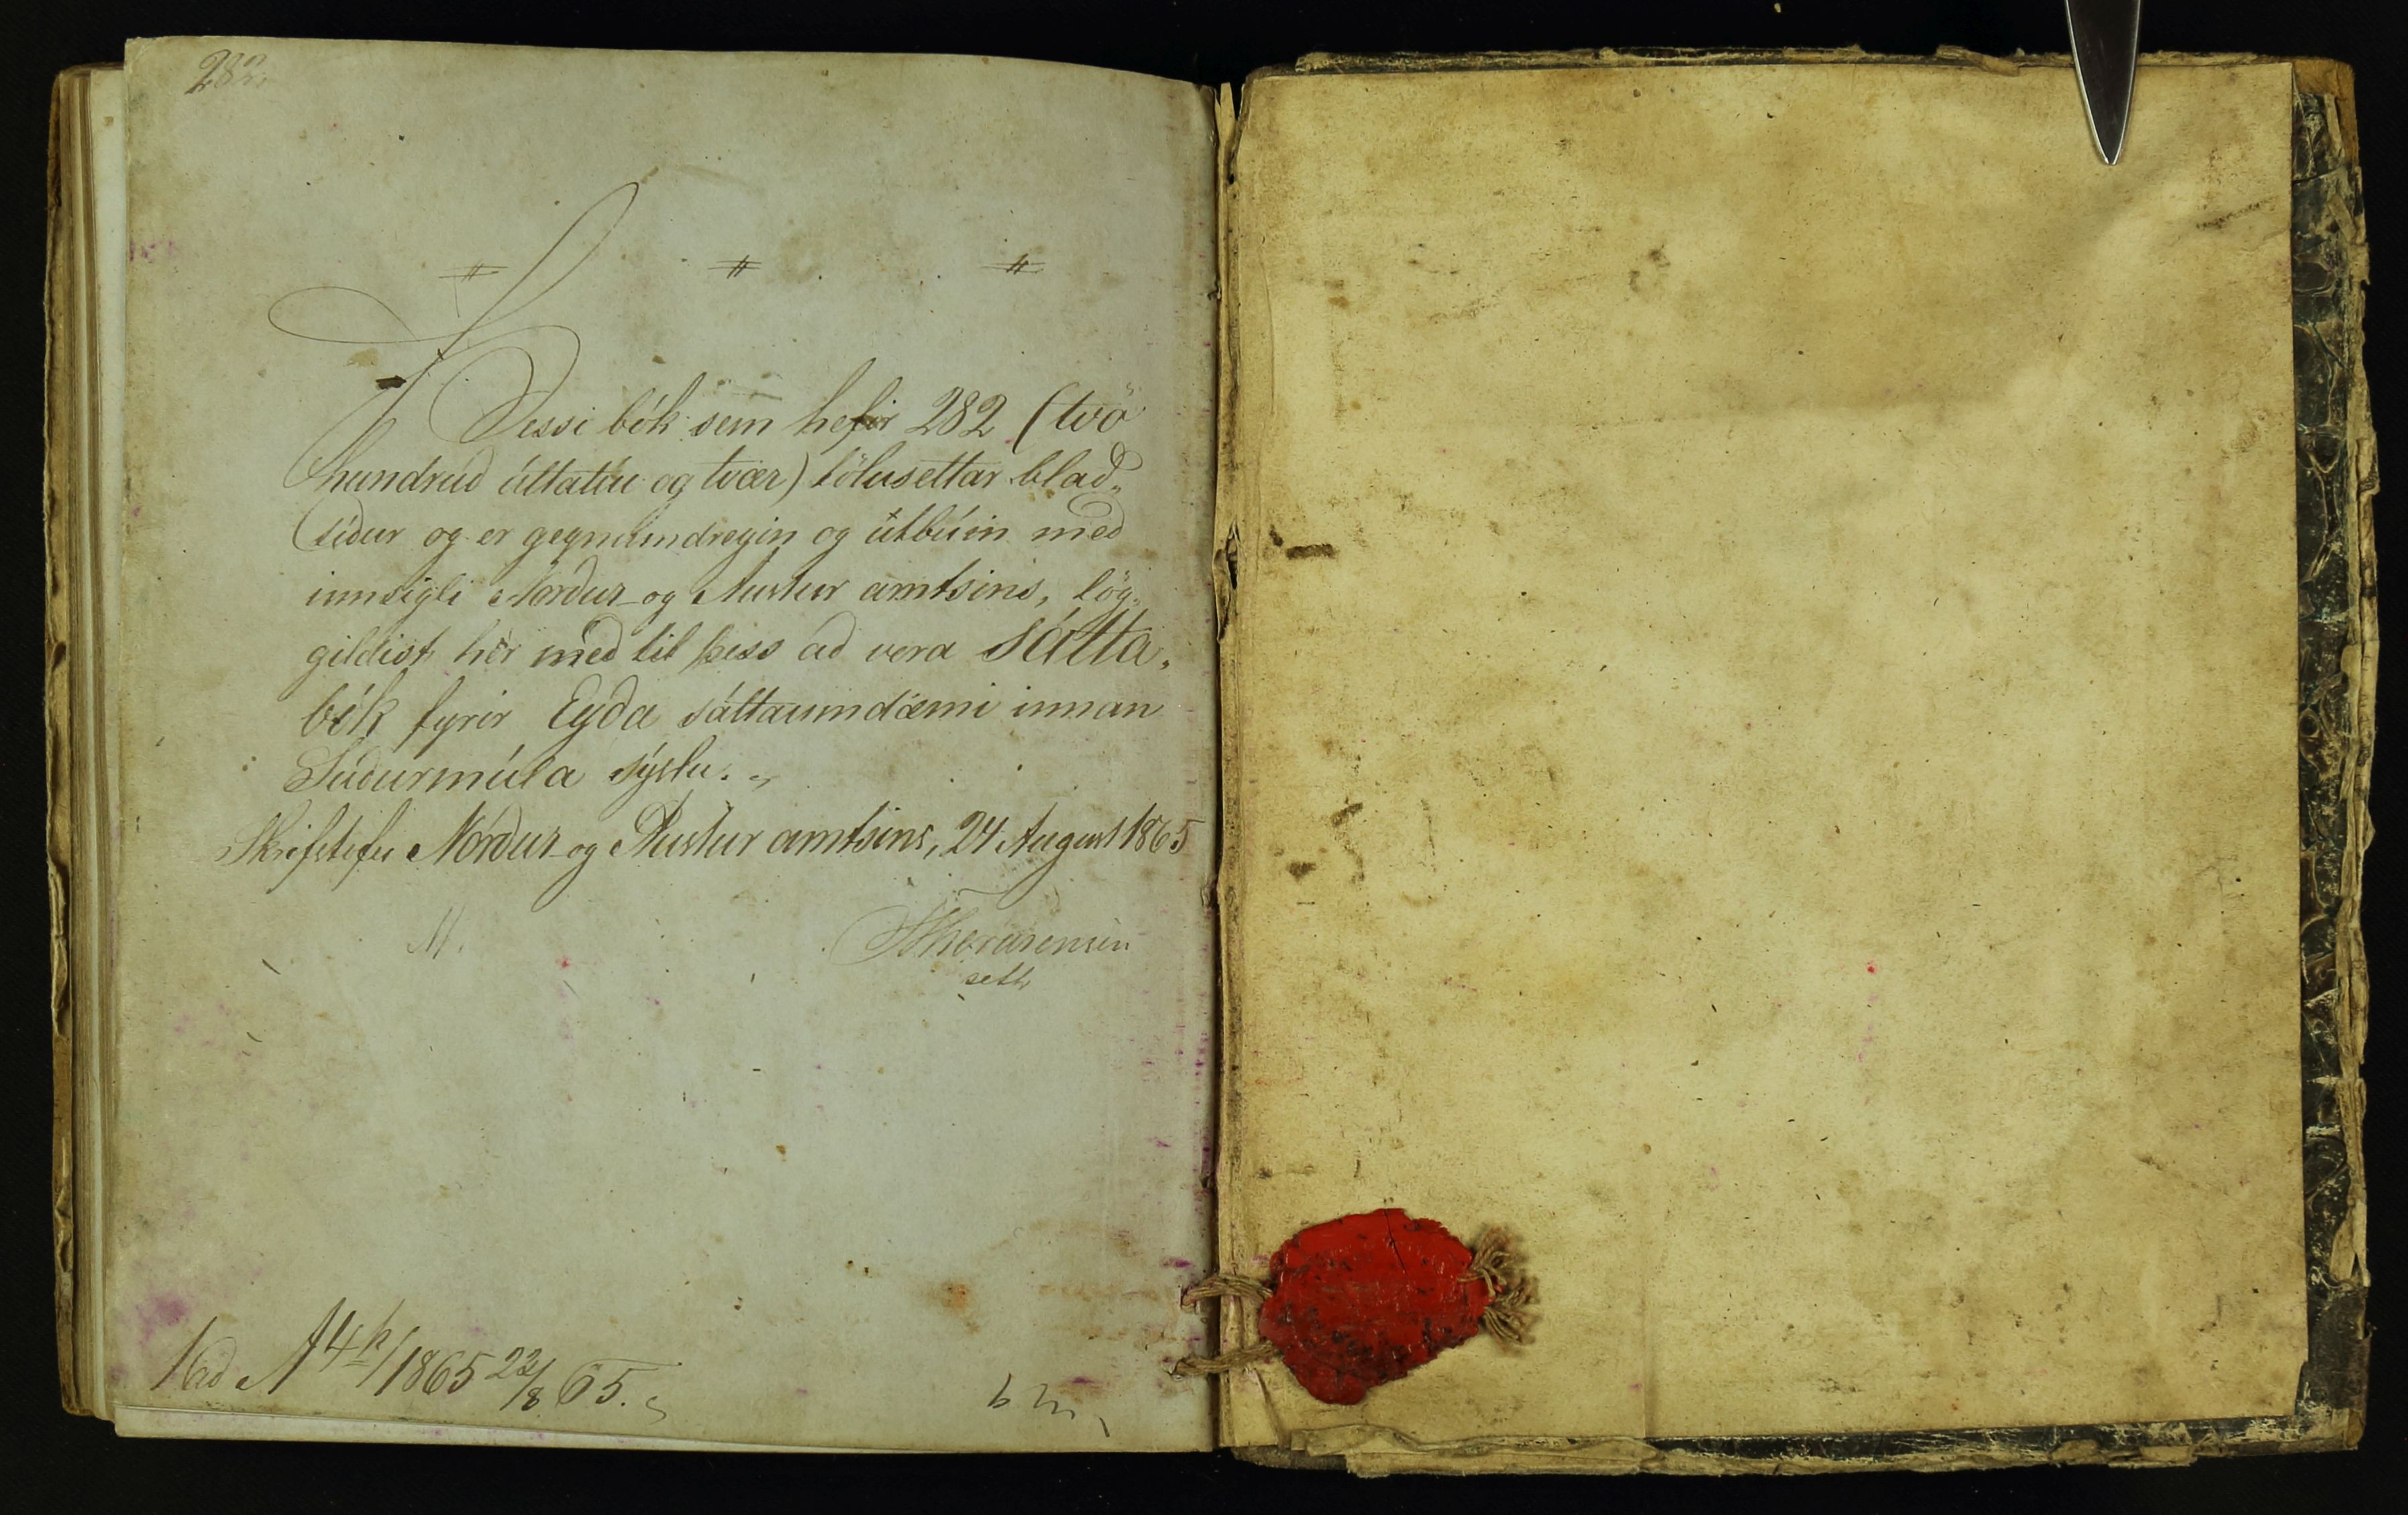 282.
Þessi bók sem hefir 282 (tvö
hundruð áttatíu og tvær) tölusettar blað„
síður og er gegnumdregin og útbúin með
innsigli Norður- og Austur amtsins, lög„
gildist hér með til þess að vera Sátta„
bók fyrir Eyða sáttaumdæmi innan
Suðurmúla sýslu.
Skrifstofu Norður- og Austur amtsins, 24 August 1865
SThorarensen
sett
1865 22/8 65.